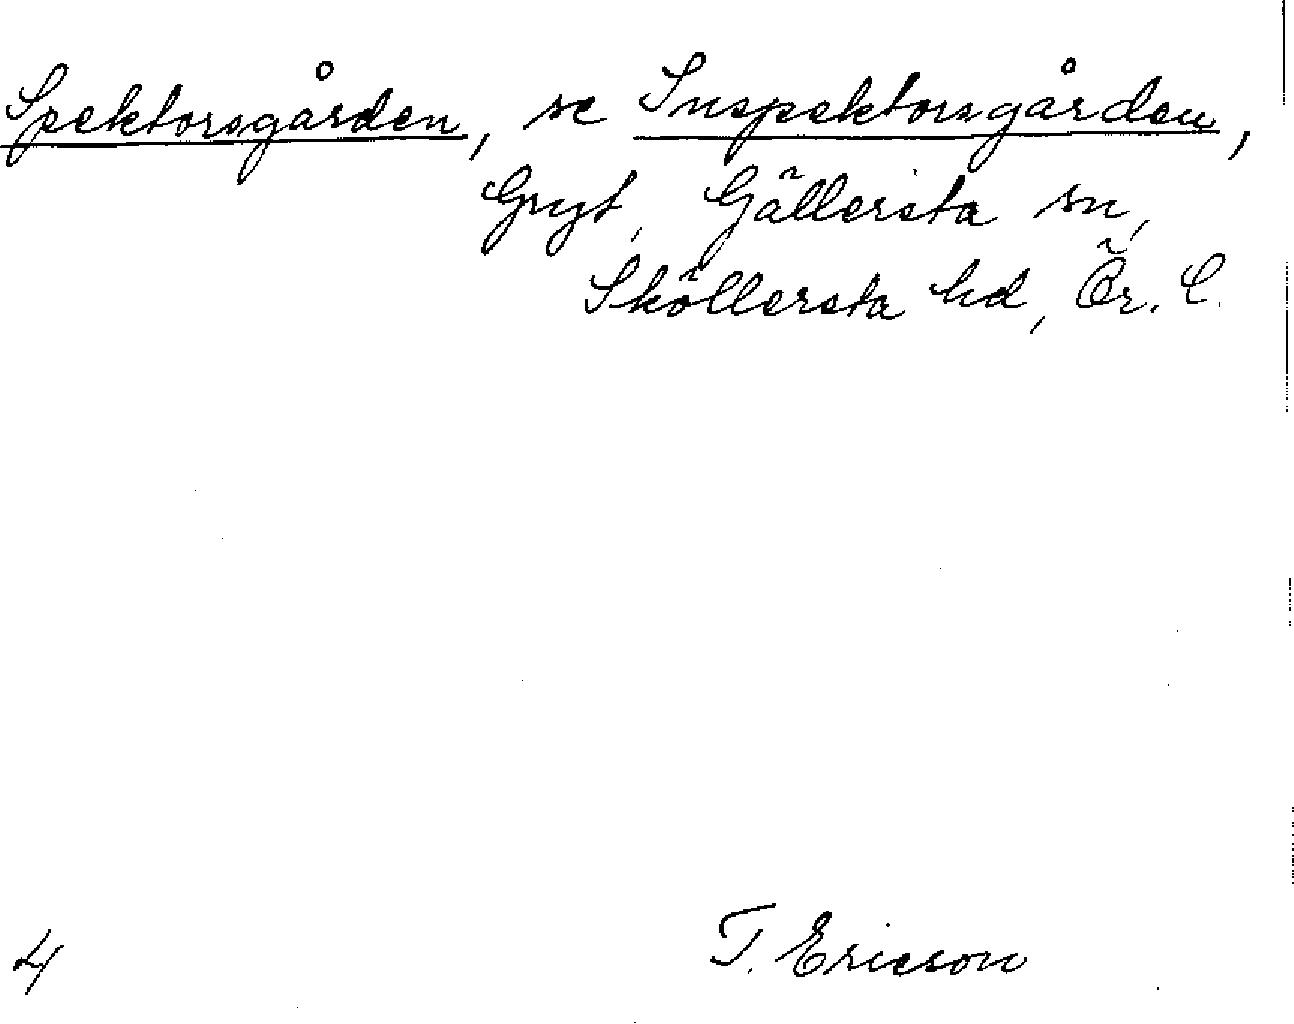 Spektorsgården, se Inspektorsgården,
Gryt, Gällersta sn,
Sköllersta hd, Ör. l.
4
T. Ericson